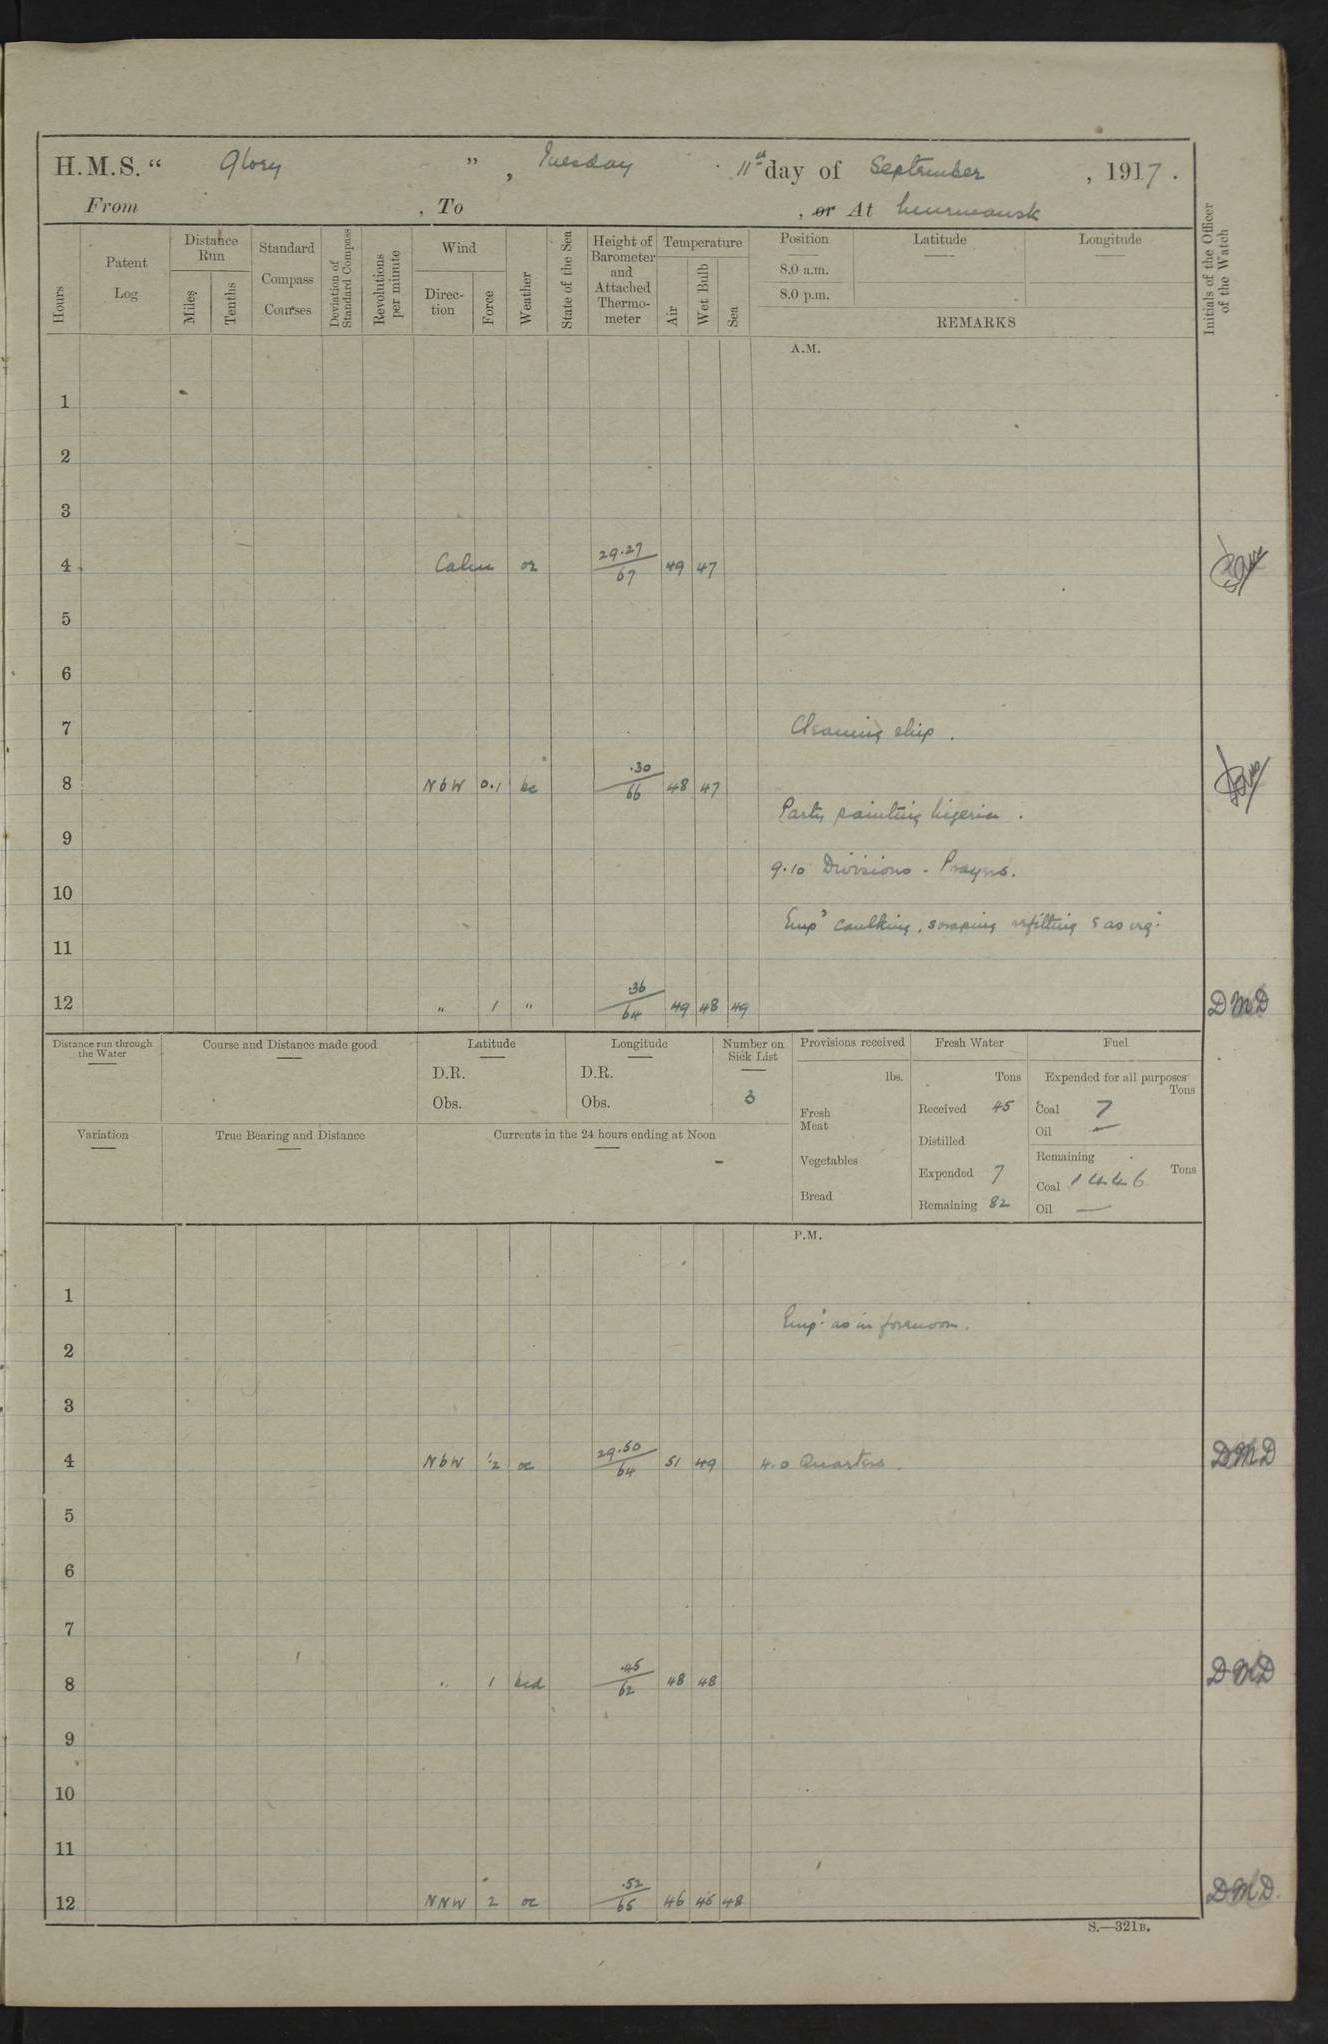 H.M.S. “ Glory ”, Tuesday 11th day of September, 1917.
From , To , or At Murmansk
Hours
Patent Log
Distance Run
Miles
Tenths
Standard Compass Courses
Deviation of Standard Compass
Revolutions per minute
Wind
Direction
Force
Weather
State of the Sea
Height of Barometer and Attached Thermometer
Temperature
Air
Wet Bulb
Sea
Position
8.0 a.m.
8.0 p.m.
Latitude
Longitude
REMARKS
Initials of the Officer of the Watch
A.M.
1
2
3
4 Calm 29.27/67 49 47
5
6
7 Cleaning ship.
8 NbW 0.1 bc .30/66 48 47
Party painting Nigeria.
9
9.10 Divisions - Prayers.
10
Emp'd caulking, scraping refitting & as req:
11
12 " 1 " .36/64 49 48 49 DMD
Distance run through the Water
Course and Distance made good
Latitude
D.R.
Obs.
Longitude
D.R.
Obs.
Number on Sick List
3
Provisions received
lbs.
Fresh Meat
Vegetables
Bread
Fresh Water
Tons
Received 45
Distilled
Expended 7
Remaining 82
Fuel
Expended for all purposes
Tons
Coal 7
Oil —
Remaining
Tons
Coal 1446
Oil —
Variation
True Bearing and Distance
Currents in the 24 hours ending at Noon
P.M.
1
Emp: as in forenoon.
2
3
4 NbW 1/2 oc 29.50/64 51 49 4.0 Quarters. DMD
5
6
7
8 " 1 bcd .45/62 48 48 DMD
9
10
11
12 NNW 2 oc .52/65 46 45 48 DMD.
S.—321B.